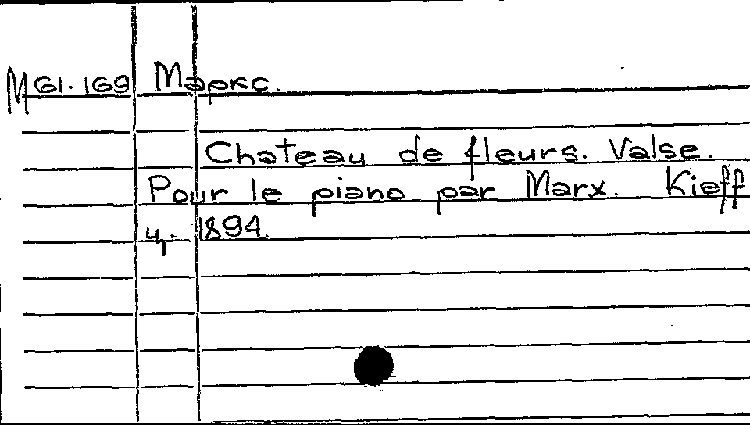 М 61.169 Маркс.
Chateau de fleurs. Valse.
Pour le piano par Marx. Kieff
ц. 1894.